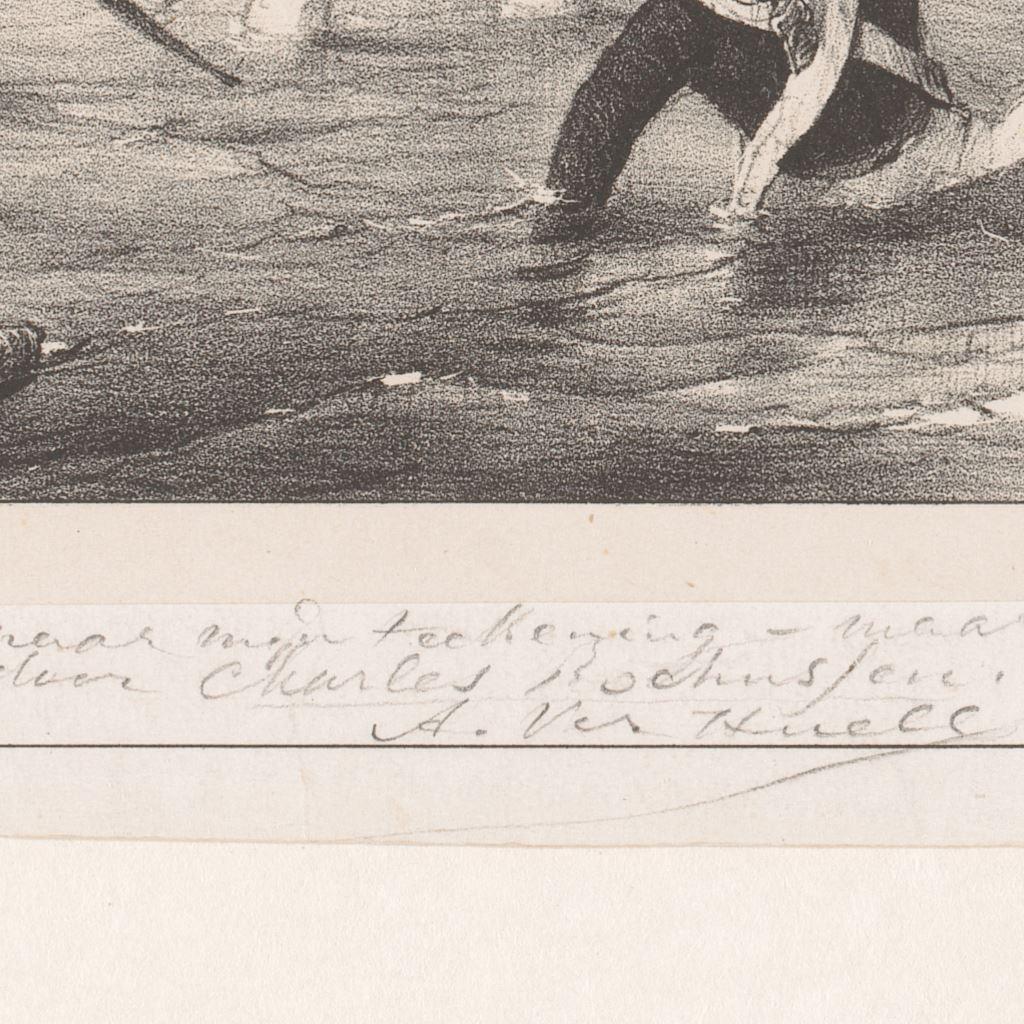 naar mijn teekening – maar
door Charles Rochussen.
A. Ver Huell